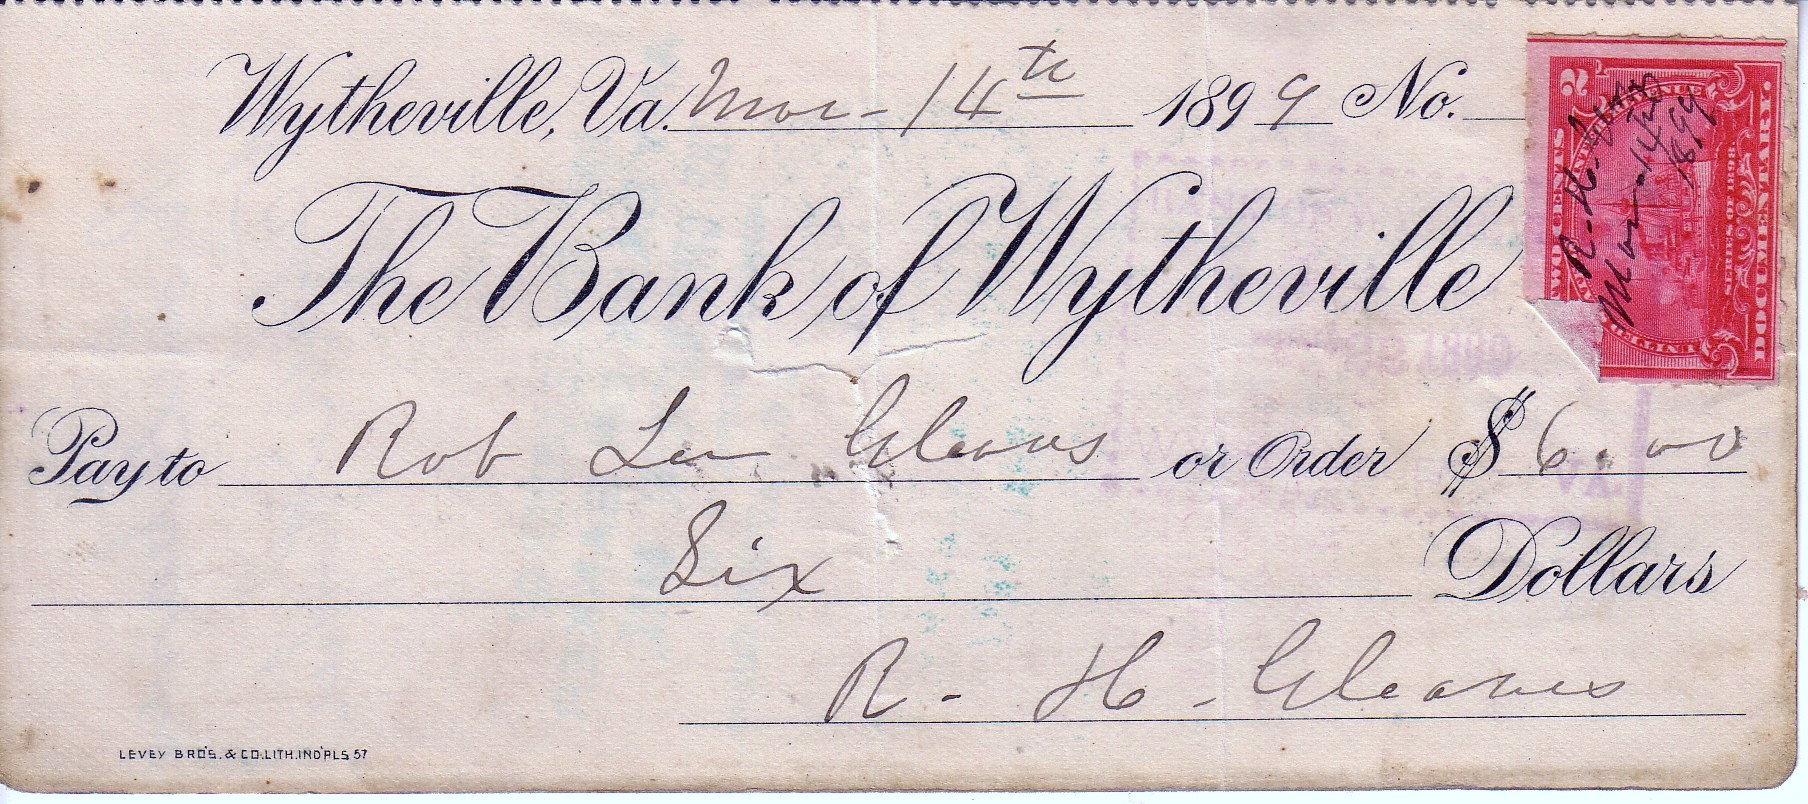 Wytheville, Va. Mar - 14th 1899 No.
The Bank of Wytheville
Pay to Rob Lee Gleaves or Order $6.00
Six Dollars
R. H. Gleaves
LEVEY BRO'S. & CO. LITH. IND'PLS 57
2
TWO CENTS
UNITED
SERIES OF 1898
DOCUMENTARY.
R. H.
Mar 14th
1899